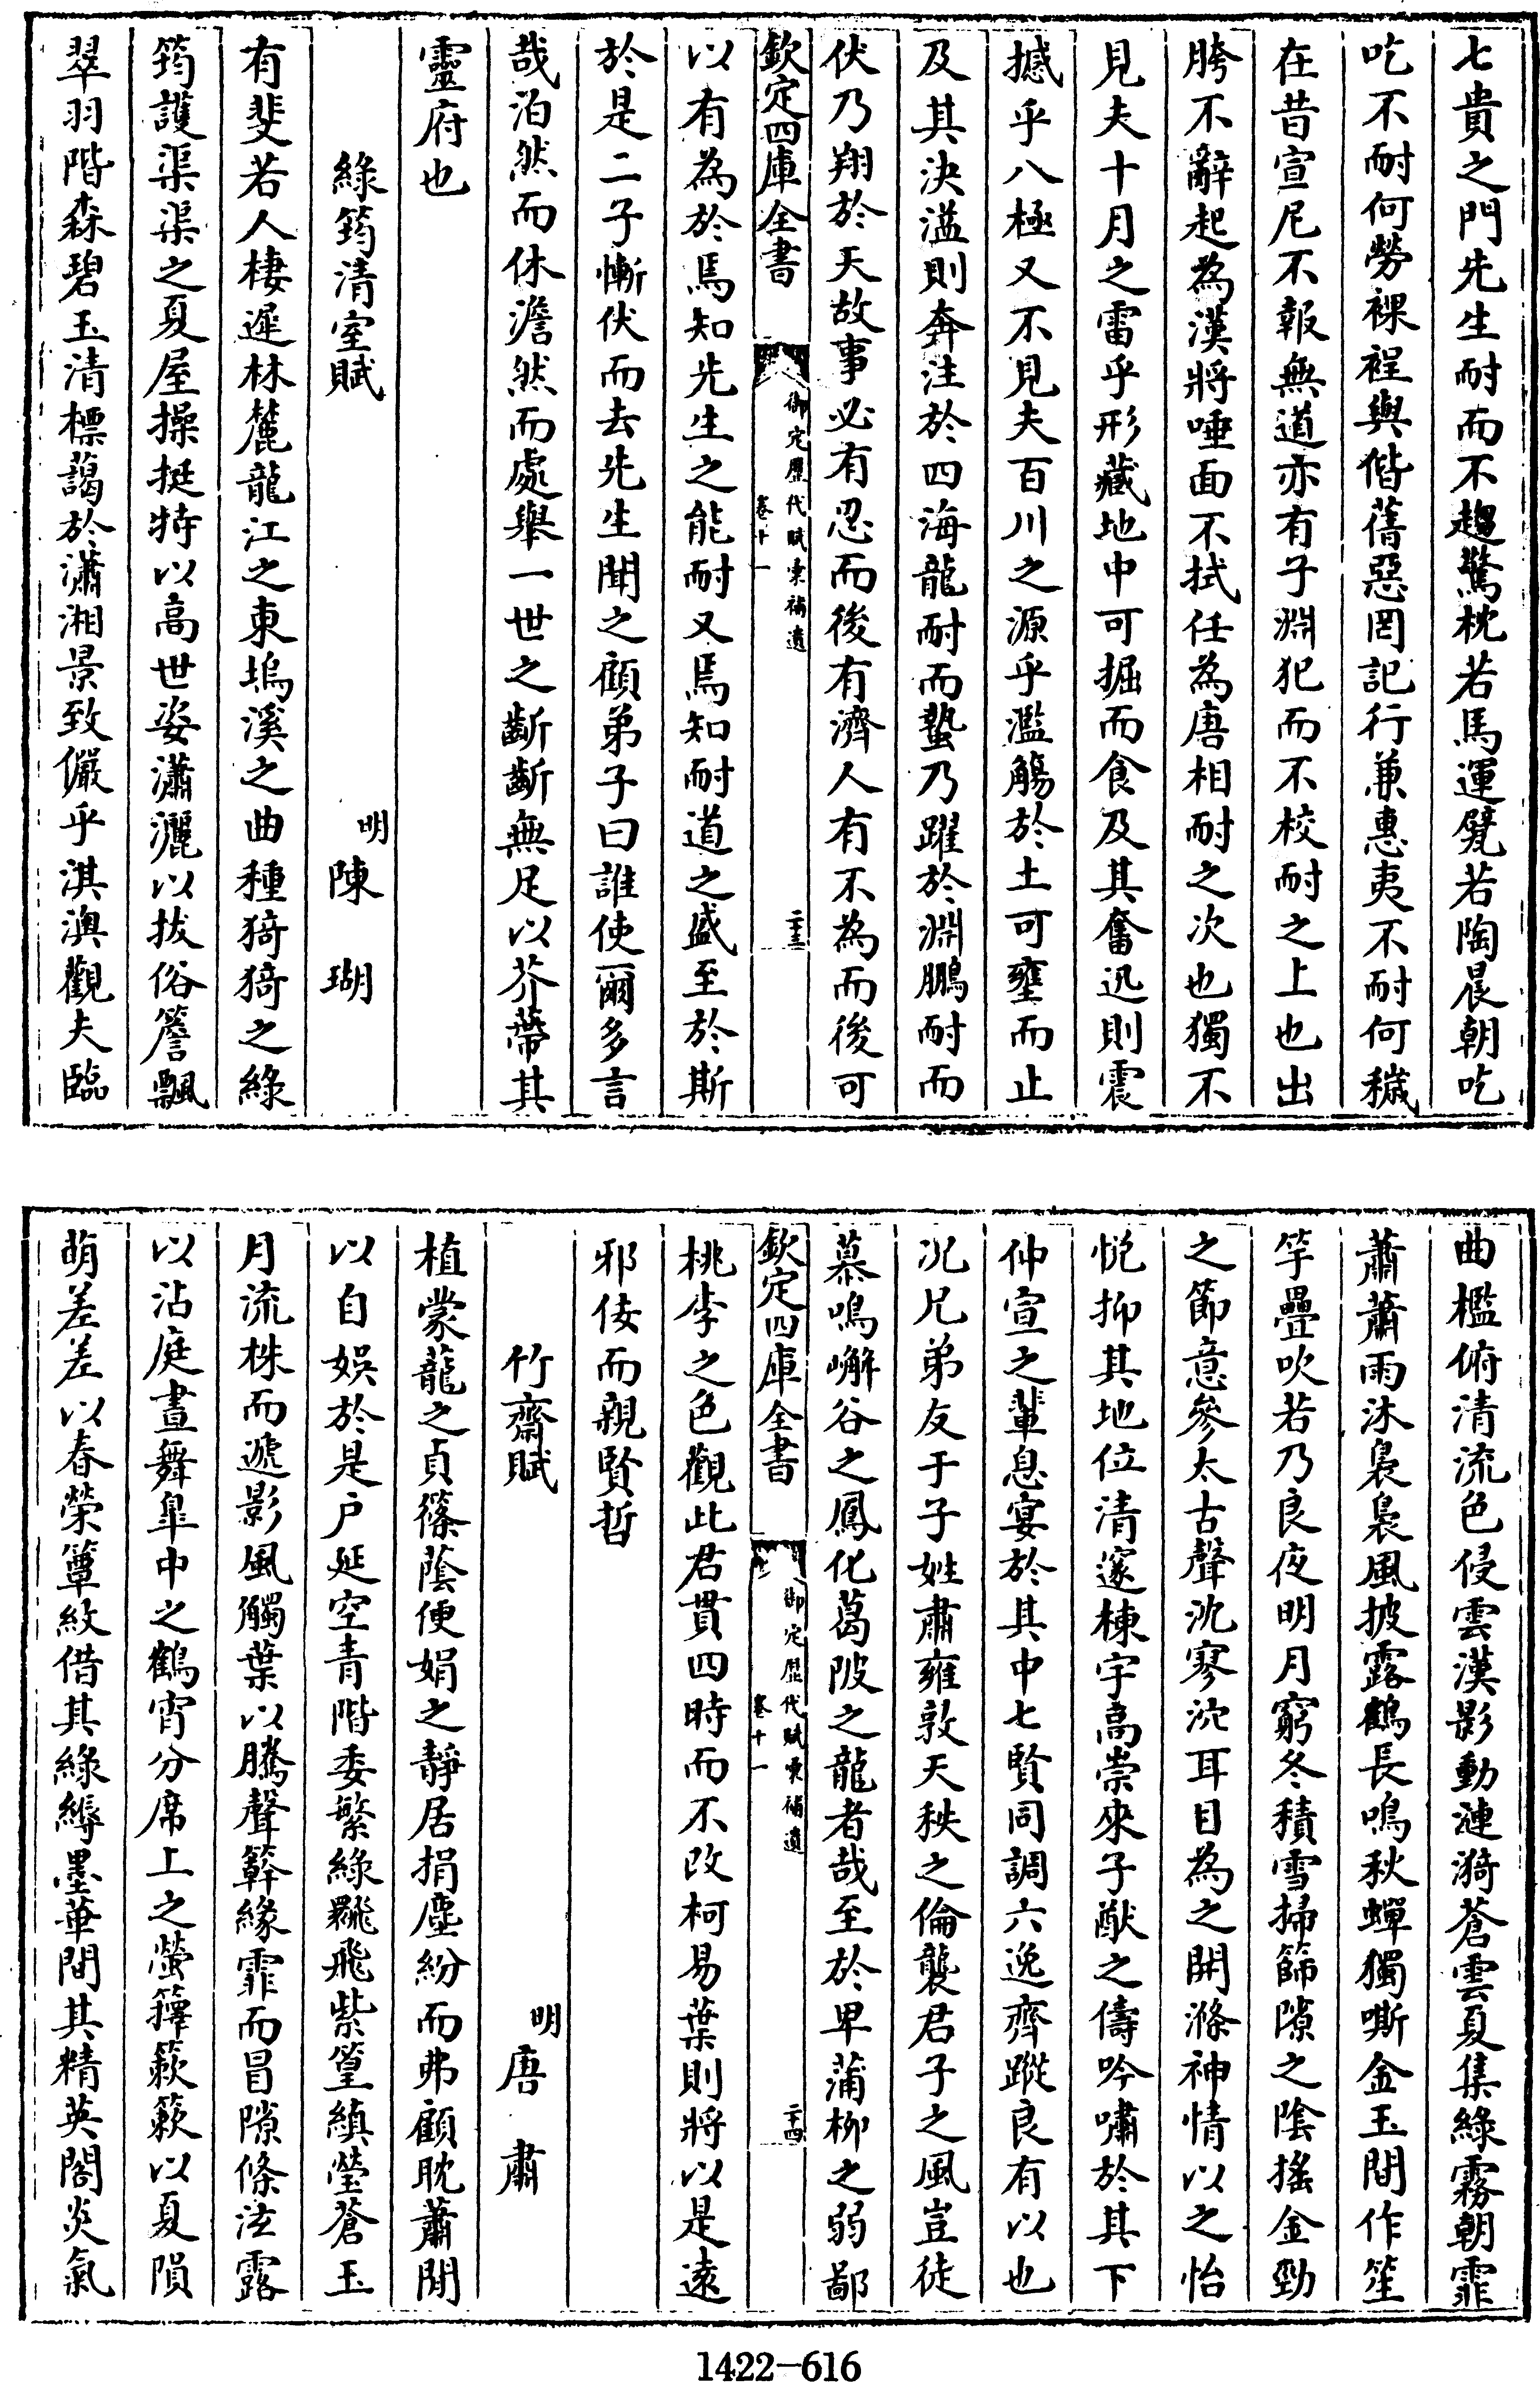 七貴之門先生耐而不趨驚枕若馬運甓若陶晨朝吃
吃不耐何勞裸裎與偕蓍惡罔記行兼惠夷不耐何穢
在昔宣尼不報無道亦有子淵犯而不校耐之上也出
胯不辭起為漢將唾面不拭任為唐相耐之次也獨不
見夫十月之雷乎形藏地中可掘而食及其奮迅則震
撼乎八極又不見夫百川之源乎濫觴於土可壅而止
及其決溢則奔注於四海龍耐而蟄乃躍於淵鵬耐而
伏乃翔於天故事必有忍而後有濟人有不為而後可
欽定四庫全書 御定歷代賦彙補遺 卷十一 二十三
以有為於焉知先生之能耐又焉知耐道之盛至於斯
於是二子慚伏而去先生聞之顧弟子曰誰使爾多言
哉泊然而休澹然而處舉一世之齗齗無足以芥蔕其
靈府也
綠筠清室賦
明陳 瑚
有斐若人棲遲林麓龍江之東塢溪之曲種猗猗之綠
筠護渠渠之夏屋操挺特以高世姿瀟灑以拔俗簷飄
翠羽階森碧玉清標藹於瀟湘景致儼乎淇澳觀夫臨
曲檻俯清流色侵雲漢影動漣漪蒼雲夏集綠霧朝霏
蕭蕭雨沐裊裊風披露鶴長鳴秋蟬獨嘶金玉間作笙
竽疊吹若乃良夜明月窮冬積雪掃篩隙之陰搖金勁
之節意參太古聲沈寥沈耳目為之開滌神情以之怡
悅抑其地位清邃棟宇高崇來子猷之儔吟嘯於其下
仲宣之輩息宴於其中七賢同調六逸齊蹤良有以也
况兄弟友于子姓肅雍敦天秩之倫襲君子之風豈徒
慕鳴嶰谷之鳳化葛陂之龍者哉至於卑蒲柳之弱鄙
欽定四庫全書 御定歷代賦彙補遺 卷十一 二十四
桃李之色觀此君貫四時而不改柯易葉則將以是遠
邪佞而親賢哲
竹齋賦
明唐 肅
植蒙蘢之貞篠蔭便娟之靜居捐塵紛而弗顧耽蕭閒
以自娛於是户延空青階委繁綠翻飛紫篁縝瑩蒼玉
月流株而遞影風觸葉以騰聲簳緣霏而冒隙條泫露
以沾庭晝舞皐中之鶴宵分席上之螢籜簌簌以夏隕
萌差差以春榮簟紋借其綠縟墨華間其精英閣炎氣
1422-616